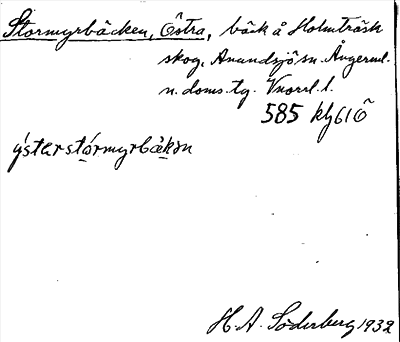 Stormyrbäcken, Östra, bäck å Holmträsk
skog, Anundsjö sn. Ångerml.
n. doms. tg. Vnorrl. l.
585 kly61Ö
ýsterstórmyrbäkɜn
H. A. Söderberg 1932